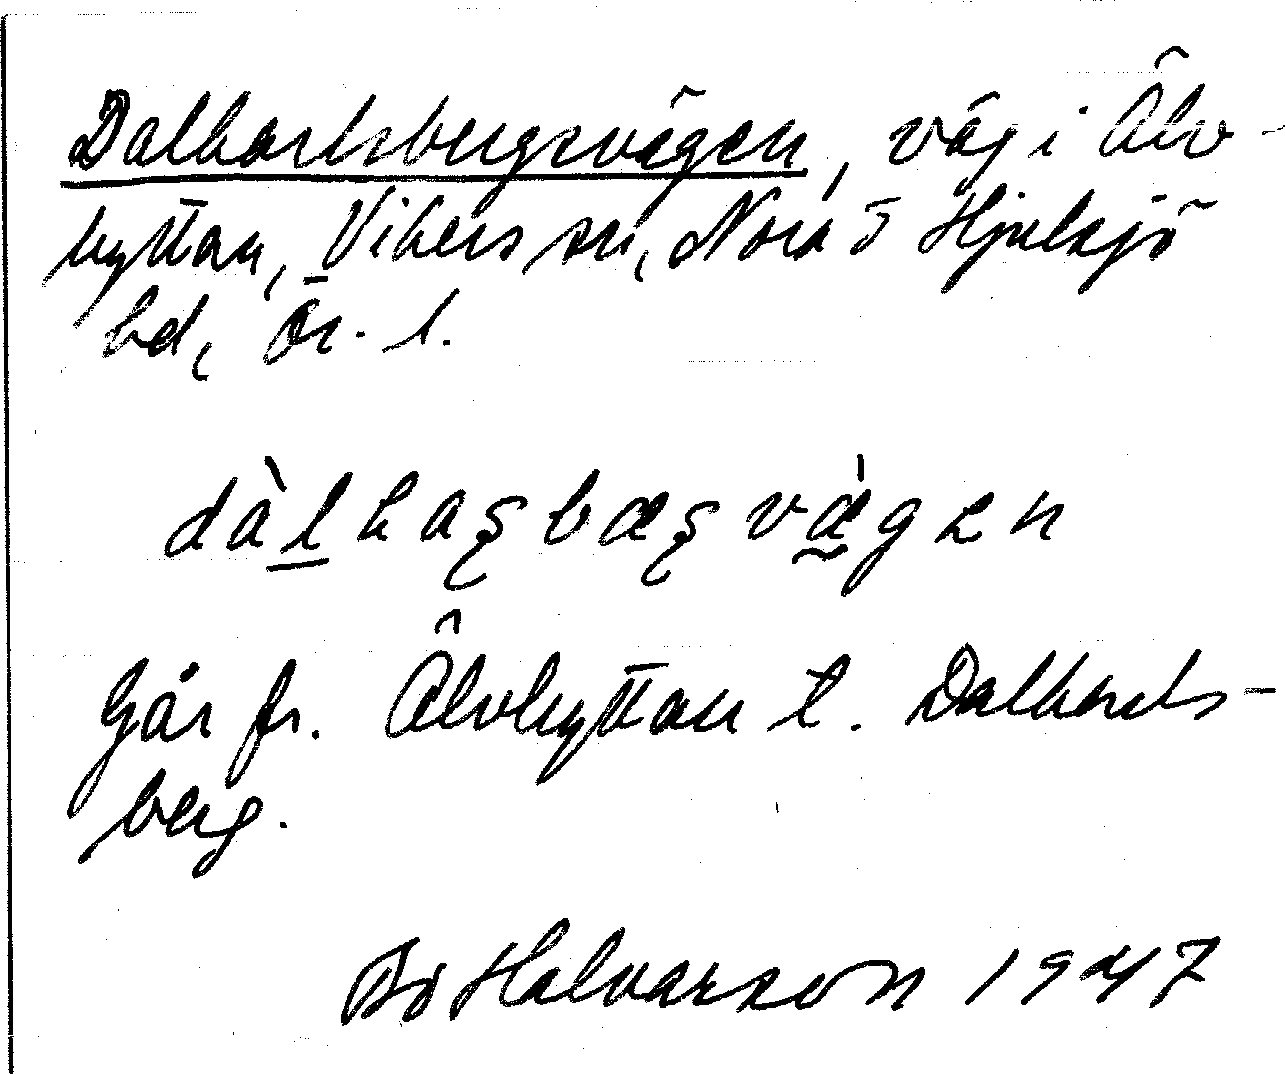 Dalkarlsbergsvägen, väg i Älv-
hyttan, Vikers sn, Nora o Hjulsjö
bd, Ör. l.
dàlkaʂbæʂvægen
Går fr. Älvhyttan t. Dalkarls-
berg.
Bo Halvarson 1947